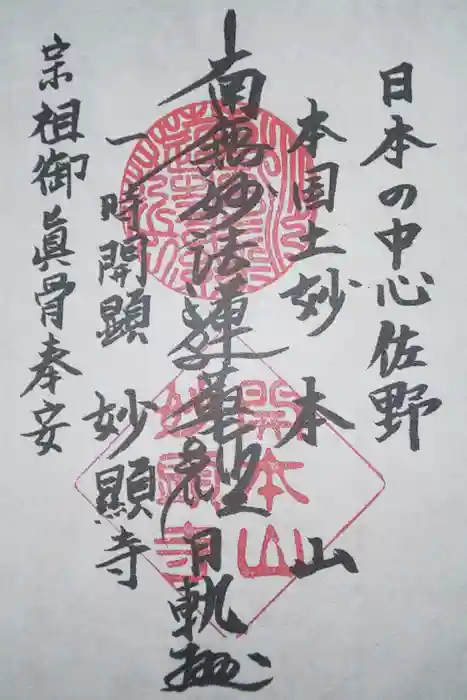 日本の中心佐野
本国土妙 本山
南無妙法蓮華経
日軌
一時開顕 妙顕寺
宗祖御眞骨奉安
開本山
妙顕寺